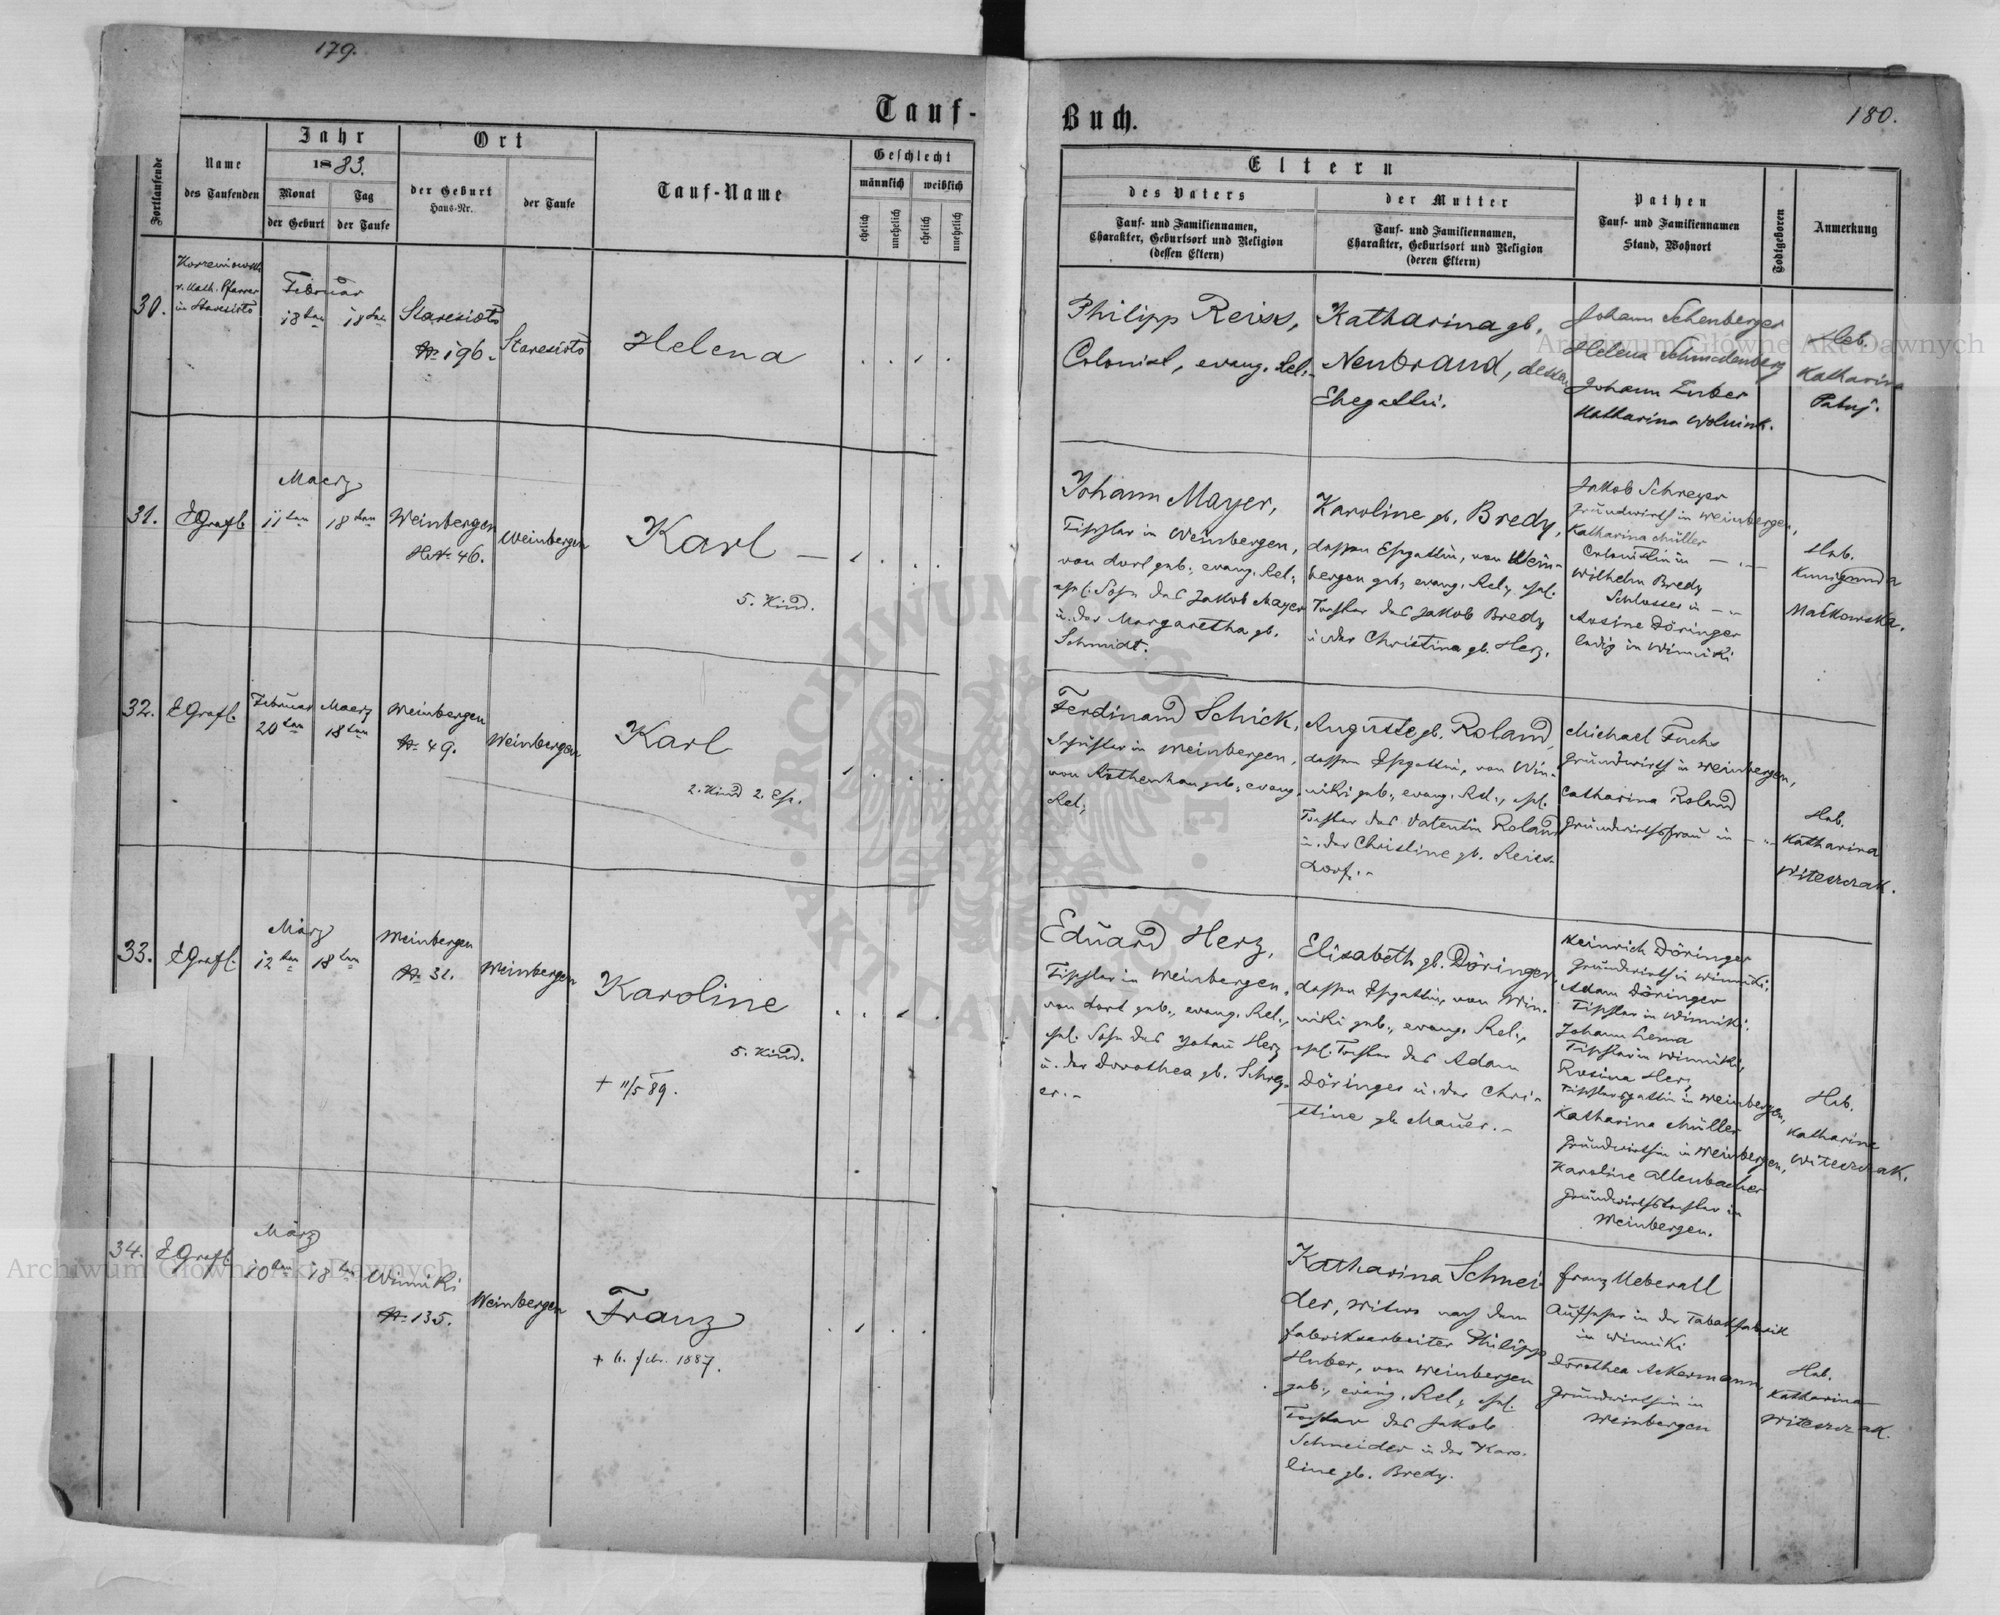 179.
Tauf-
Fortlaufende
Name
des Taufenden
Jahr
1883.
Monat
Tag
der Geburt
der Taufe
Ort
der Geburt
Haus-Nr.
der Taufe
Tauf-Name
Geschlecht
männlich
weiblich
ehelich
unehelich
ehelich
unehelich
30.
r. kath. Pfarrer
in Staresioło
Februar
18ten
18ten
Staresioło
Nr 196.
Staresioło
Helena
31.
EGrafl
Maerz
11ten
18ten
Weinbergen
HNr 46.
Weinbergen
Karl —
5. Kind.
32.
EGrafl.
Februar
20ten
Maerz
18ten
Weinbergen
Nr. 49.
Weinbergen
Karl
2. Kind 2. Eh.
33.
EGrafl.
März
12ten
18ten
Weinbergen
Nr. 31.
Weinbergen
Karoline
5. Kind.
+ 11/5 89.
34.
EGrafl.
März
10ten
18ten
Winniki
Nr. 135.
Weinbergen
Franz
+ 6. febr. 1887.
Buch.
180.
Eltern
des Vaters
Tauf- und Familiennamen,
Charakter, Geburtsort und Religion
(dessen Eltern)
der Mutter
Tauf- und Familiennamen,
Charakter, Geburtsort und Religion
(deren Eltern)
Pathen
Tauf- und Familiennamen
Stand, Wohnort
Todtgeboren
Anmerkung
Philipp Reiss,
Colonist, evang. Rel.-
Katharina gb.
Neubrand, dessen
Ehegattin.
Johann Schenberger
Helena
Johann Zuber
Katharina
Heb.
Katharina
Johann Mayer,
Tischler in Weinbergen,
von dort geb., evang. Rel.,
ehl. Sohn des Jakob Mayer
u. der Margaretha gb.
Schmidt.
Karoline gb. Bredy,
dessen Ehgattin, von Wein-
bergen geb., evang. Rel., ehl.
Tochter des Jakob Bredy
u. der Christina gb. Herz.
Jakob Schreyer
Grundwirth in Weinbergen,
Katharina Müller
Colonistin in — „ —
Wilhelm Bredy
Schlosser in — „
Rosine Döringer
ledig in Winniki
Heb.
Kunigunda
Mackowska.
Ferdinand Schick,
Schuster in Weinbergen,
von geb., evang.
Rel.,
Auguste gb. Roland,
dessen Ehgattin, von Win-
niki geb., evang. Rel., ehl.
Tochter des Valentin Roland
u. der Christine gb. Reiss-
dorf.-
Michael Fuchs
Grundwirth in Weinbergen,
Catharina Roland
Grundwirthsfrau in — „ —
Heb.
Katharina
Witeszczak.
Eduard Herz,
Tischler in Weinbergen,
von dort geb., evang. Rel.,
ehl. Sohn des Johan Herz
u. der Dorothea gb. Schrey-
er.-
Elisabeth gb. Döringer,
dessen Ehgattin, von Win-
niki geb., evang. Rel.,
ehl. Tochter des Adam
Döringer u. der Chri-
stine gb. Mauer.-
Heinrich Döringer
Grundwirth in Winniki,
Adam Döringer
Tischler in Winniki.
Johann
Tischler in Winniki,
Rosina Herz
Tischlersgattin in Weinbergen,
Katharina Müller
Grundwirthin in Weinbergen,
Karoline Allenbacher
Grundwirthstochter in
Weinbergen.
Heb.
Katharine
Witeszczak.
Katharina Schnei-
der, Witwe nach dem
Fabriksarbeiter Philipp
Huber, von Weinbergen
geb., evang. Rel., ehl.
Tochter des Jakob
Schneider u. der Karo-
line gb. Bredy.
Franz Ueberall
Aufseher in der Tabakfabrik
in Winniki
Dorothea Ackermann,
Grundwirthin in
Weinbergen
Heb.
Katharina
Witeszczak.
Archiwum Główne Akt Dawnych
Archiwum Główne Akt Dawnych
ARCHIWUM GŁÓWNE AKT DAWNYCH